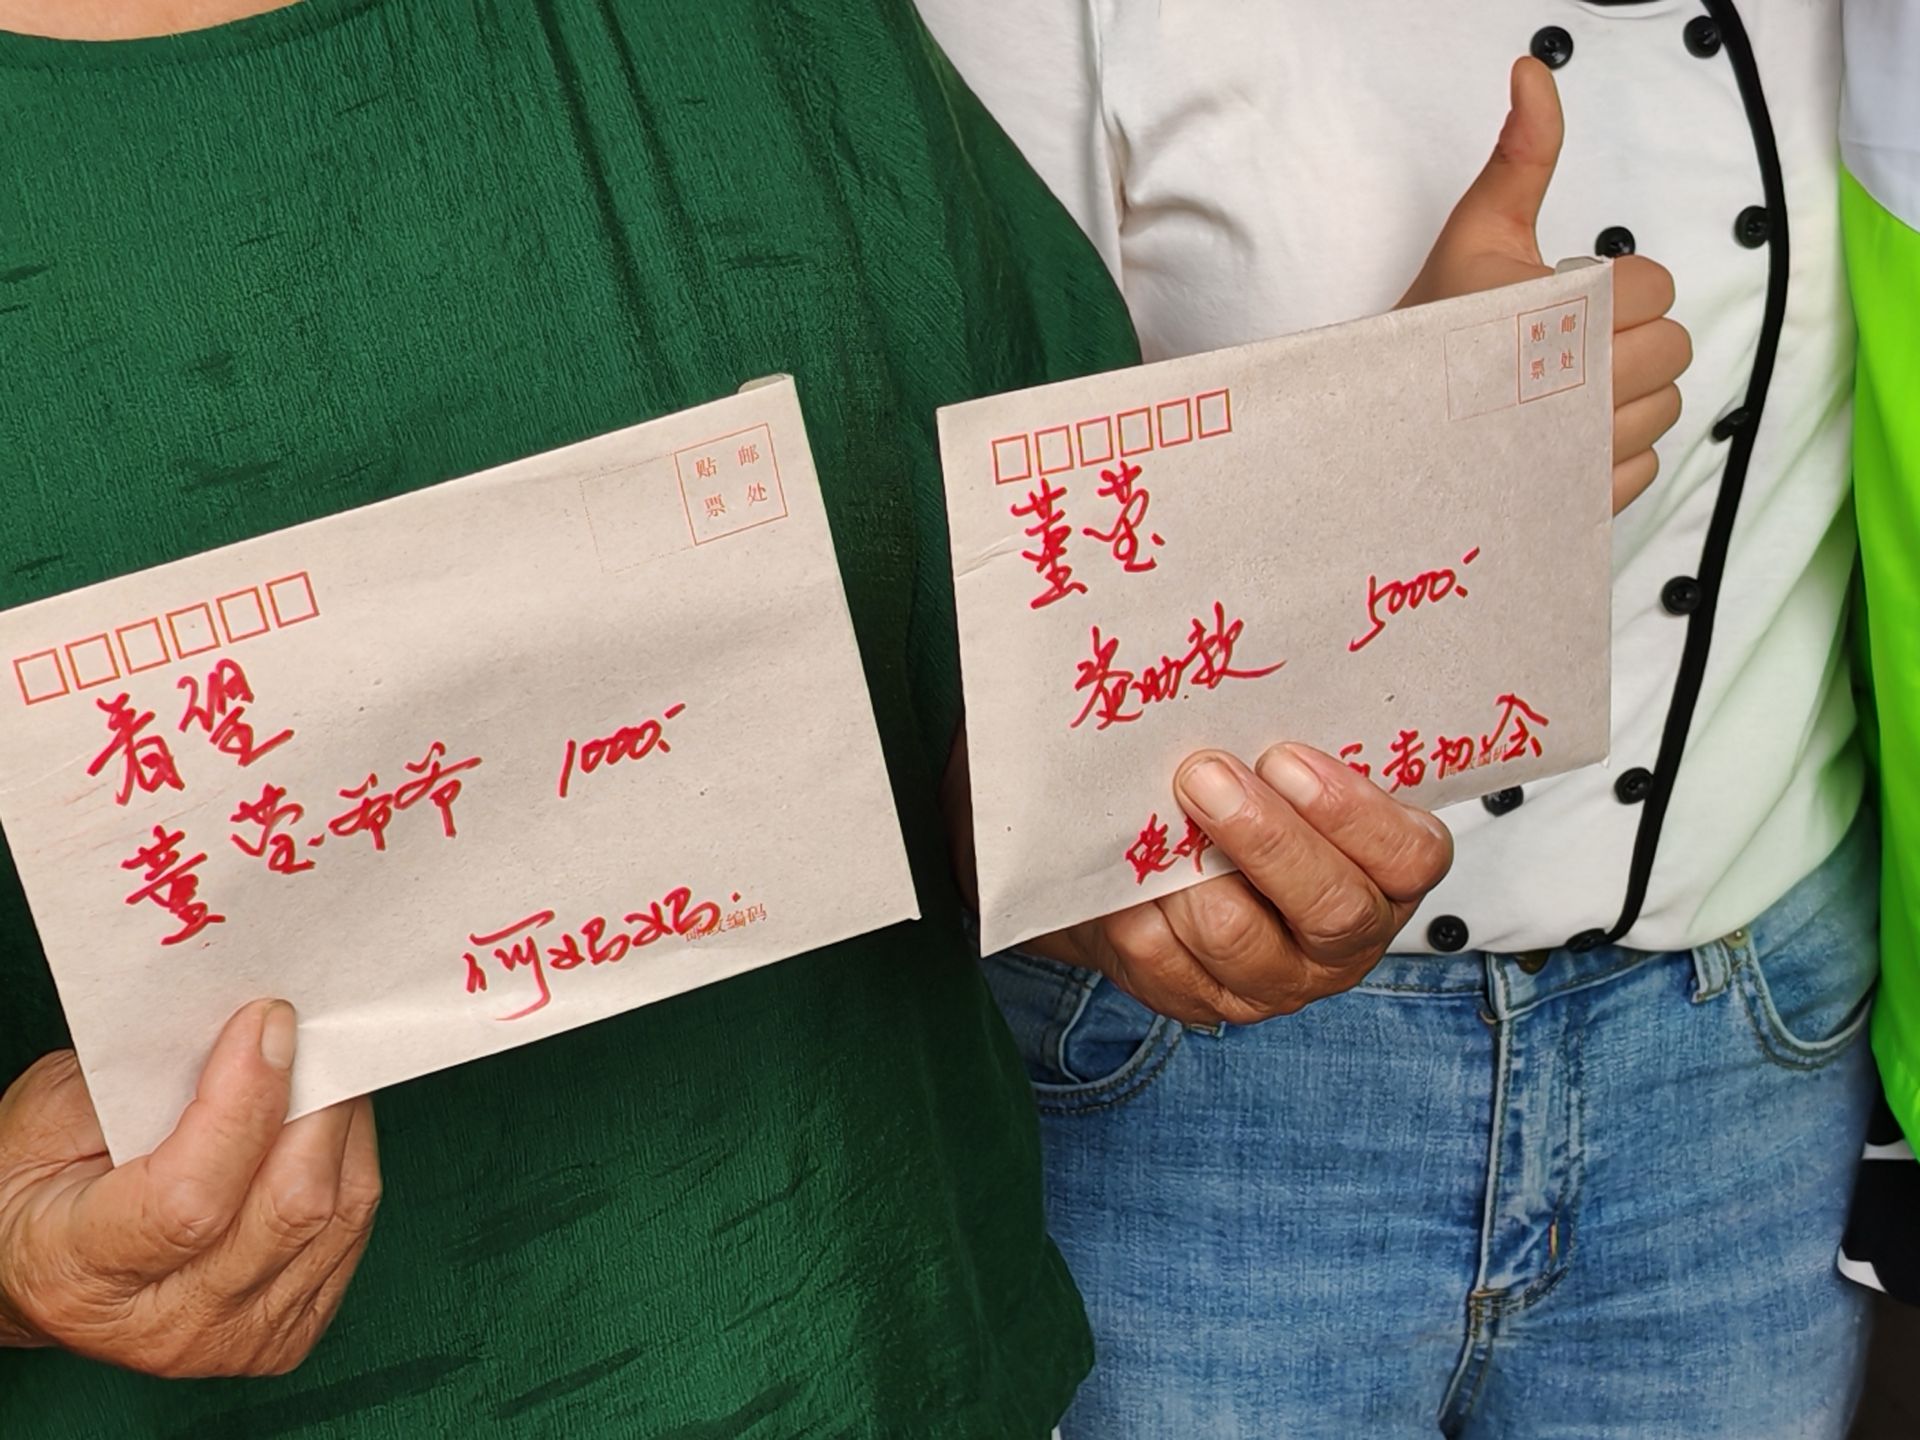 贴 邮
票 处
看望
董莹爷爷 1000.-
何妈妈.
邮政编码
贴 邮
票 处
董莹
资助款 5000.-
者协会